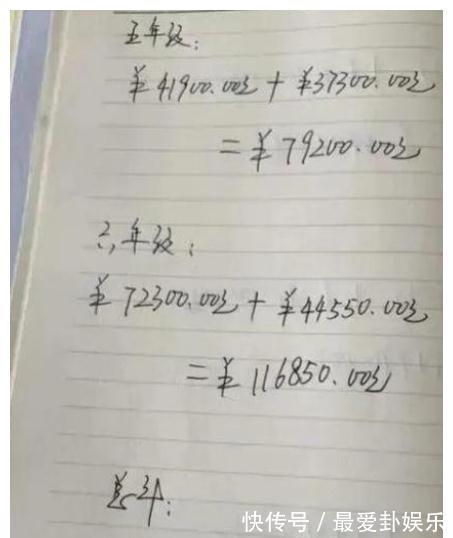 五年级：
¥41900.00元 + ¥37300.00元
= ¥79200.00元
六年级：
¥72300.00元 + ¥44550.00元
= ¥116850.00元
总计：
快传号 / 最爱卦娱乐